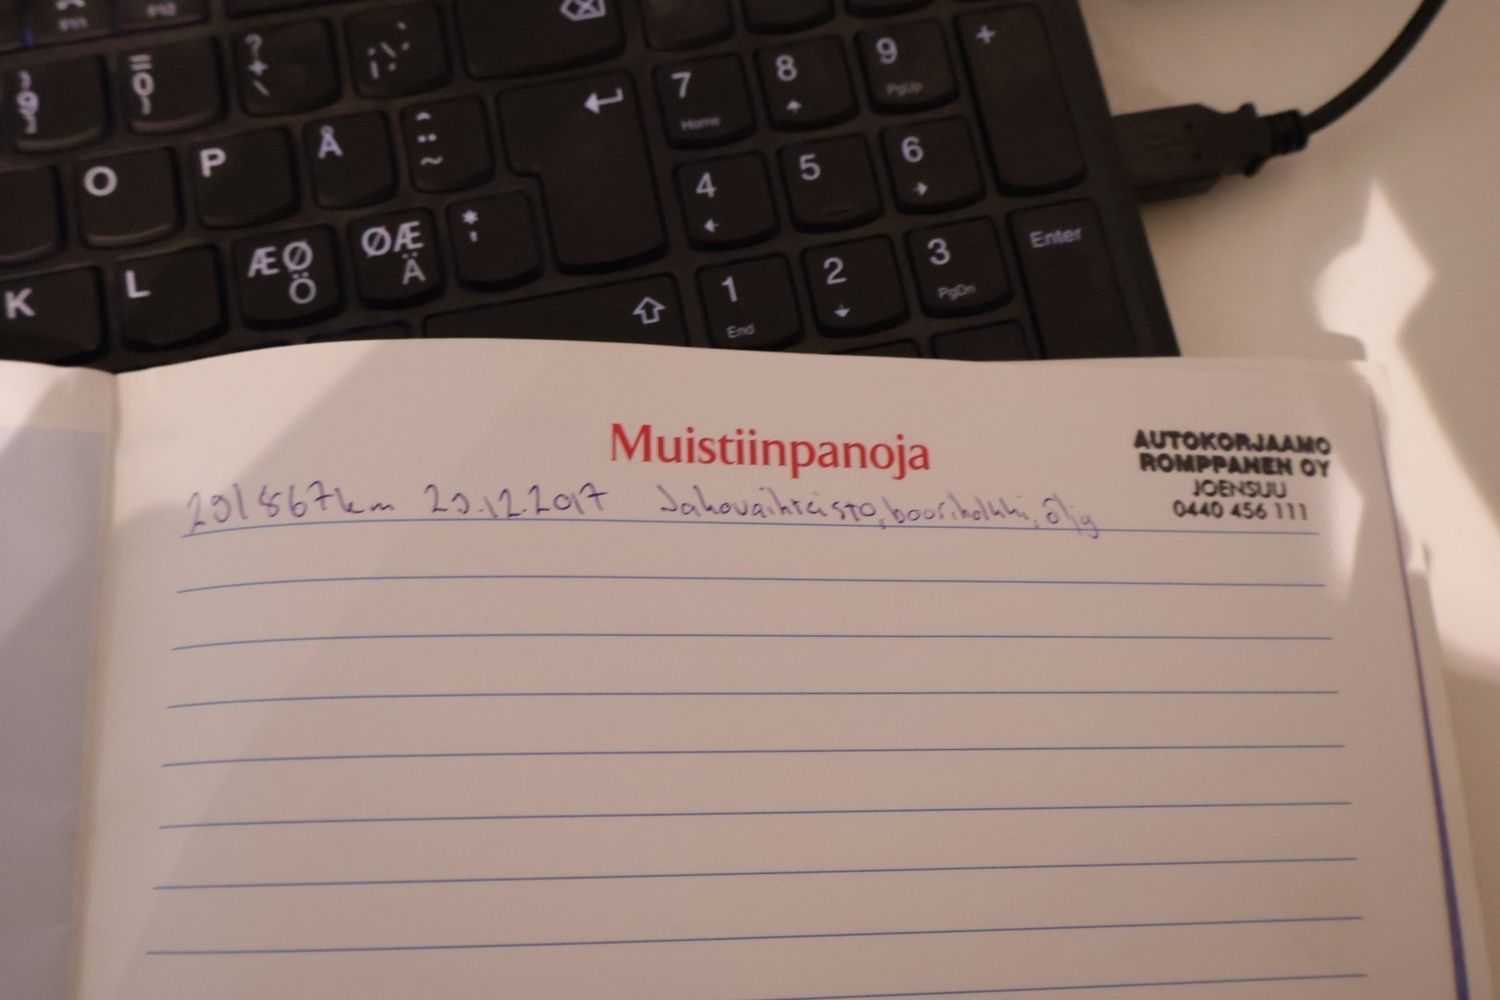 F11
F12
)
9
=
0
}
?
+
\
O
P
Å
^
¨
~
K
L
ÆØ
Ö
ØÆ
Ä
*
'
7
Home
8
9
PgUp
+
4
5
6
1
End
2
3
PgDn
Enter
Muistiinpanoja
AUTOKORJAAMO
ROMPPANEN OY
JOENSUU
0440 456 111
291867km 29.12.2017 Jakovaihteisto, booriholkki, öljy